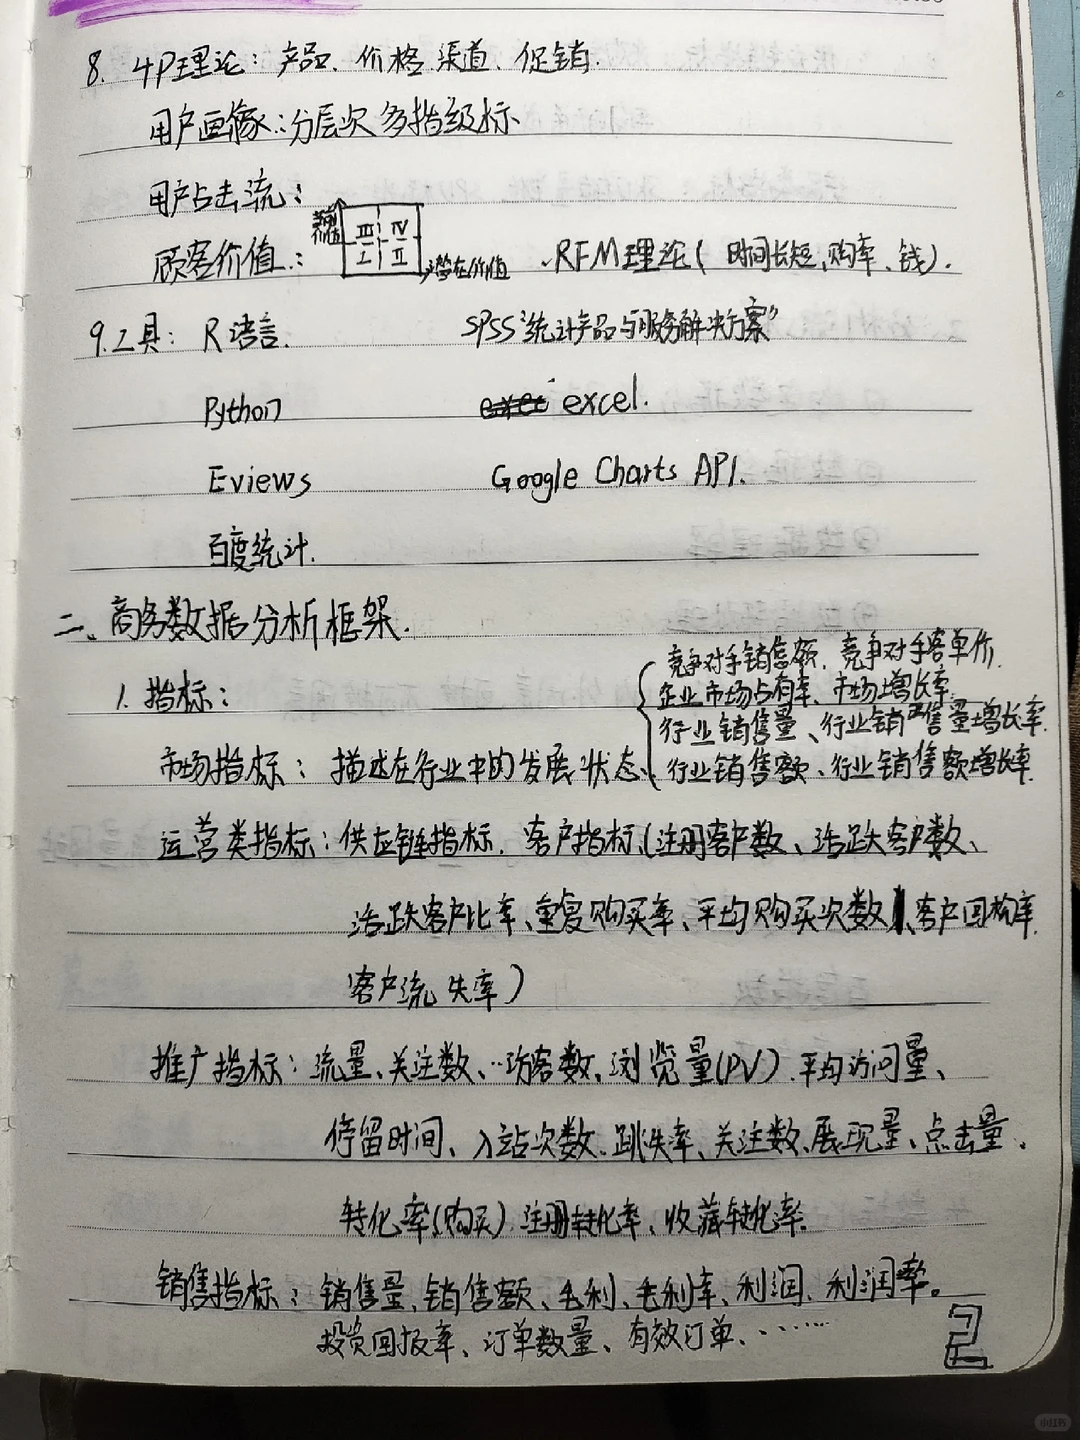 8. 4P理论：产品、价格、渠道、促销.
用户画像：分层次 多指级标
用户占击流：
顾客价值：
III IV
I II
潜在价值
RFM理论( 时间长短,购率、钱).
9.工具： R语言. SPSS“统计产品与服务解决方案”
Python excel.
Eviews Google Charts API.
百度统计.
二、商务数据分析框架.
1. 指标：
竞争对手销售额、竞争对手客单价.
企业市场占有率、市场增长率.
行业销售量、行业销售量增长率.
市场指标：描述在行业中的发展状态、 行业销售额、行业销售额增长率.
运营类指标：供应链指标. 客户指标(注册客户数、活跃客户数、
活跃客户比率、重复购买率、平均购买次数、客户回购率.
客户流失率)
推广指标：流量、关注数、访客数、浏览量(PV). 平均访问量、
停留时间、入站次数、跳失率、关注数、展现量、点击量、
转化率(购买) 注册转化率、收藏转化率.
销售指标：销售量、销售额、毛利、毛利率、利润、利润率。
投资回报率、订单数量、有效订单、……
2
小红书